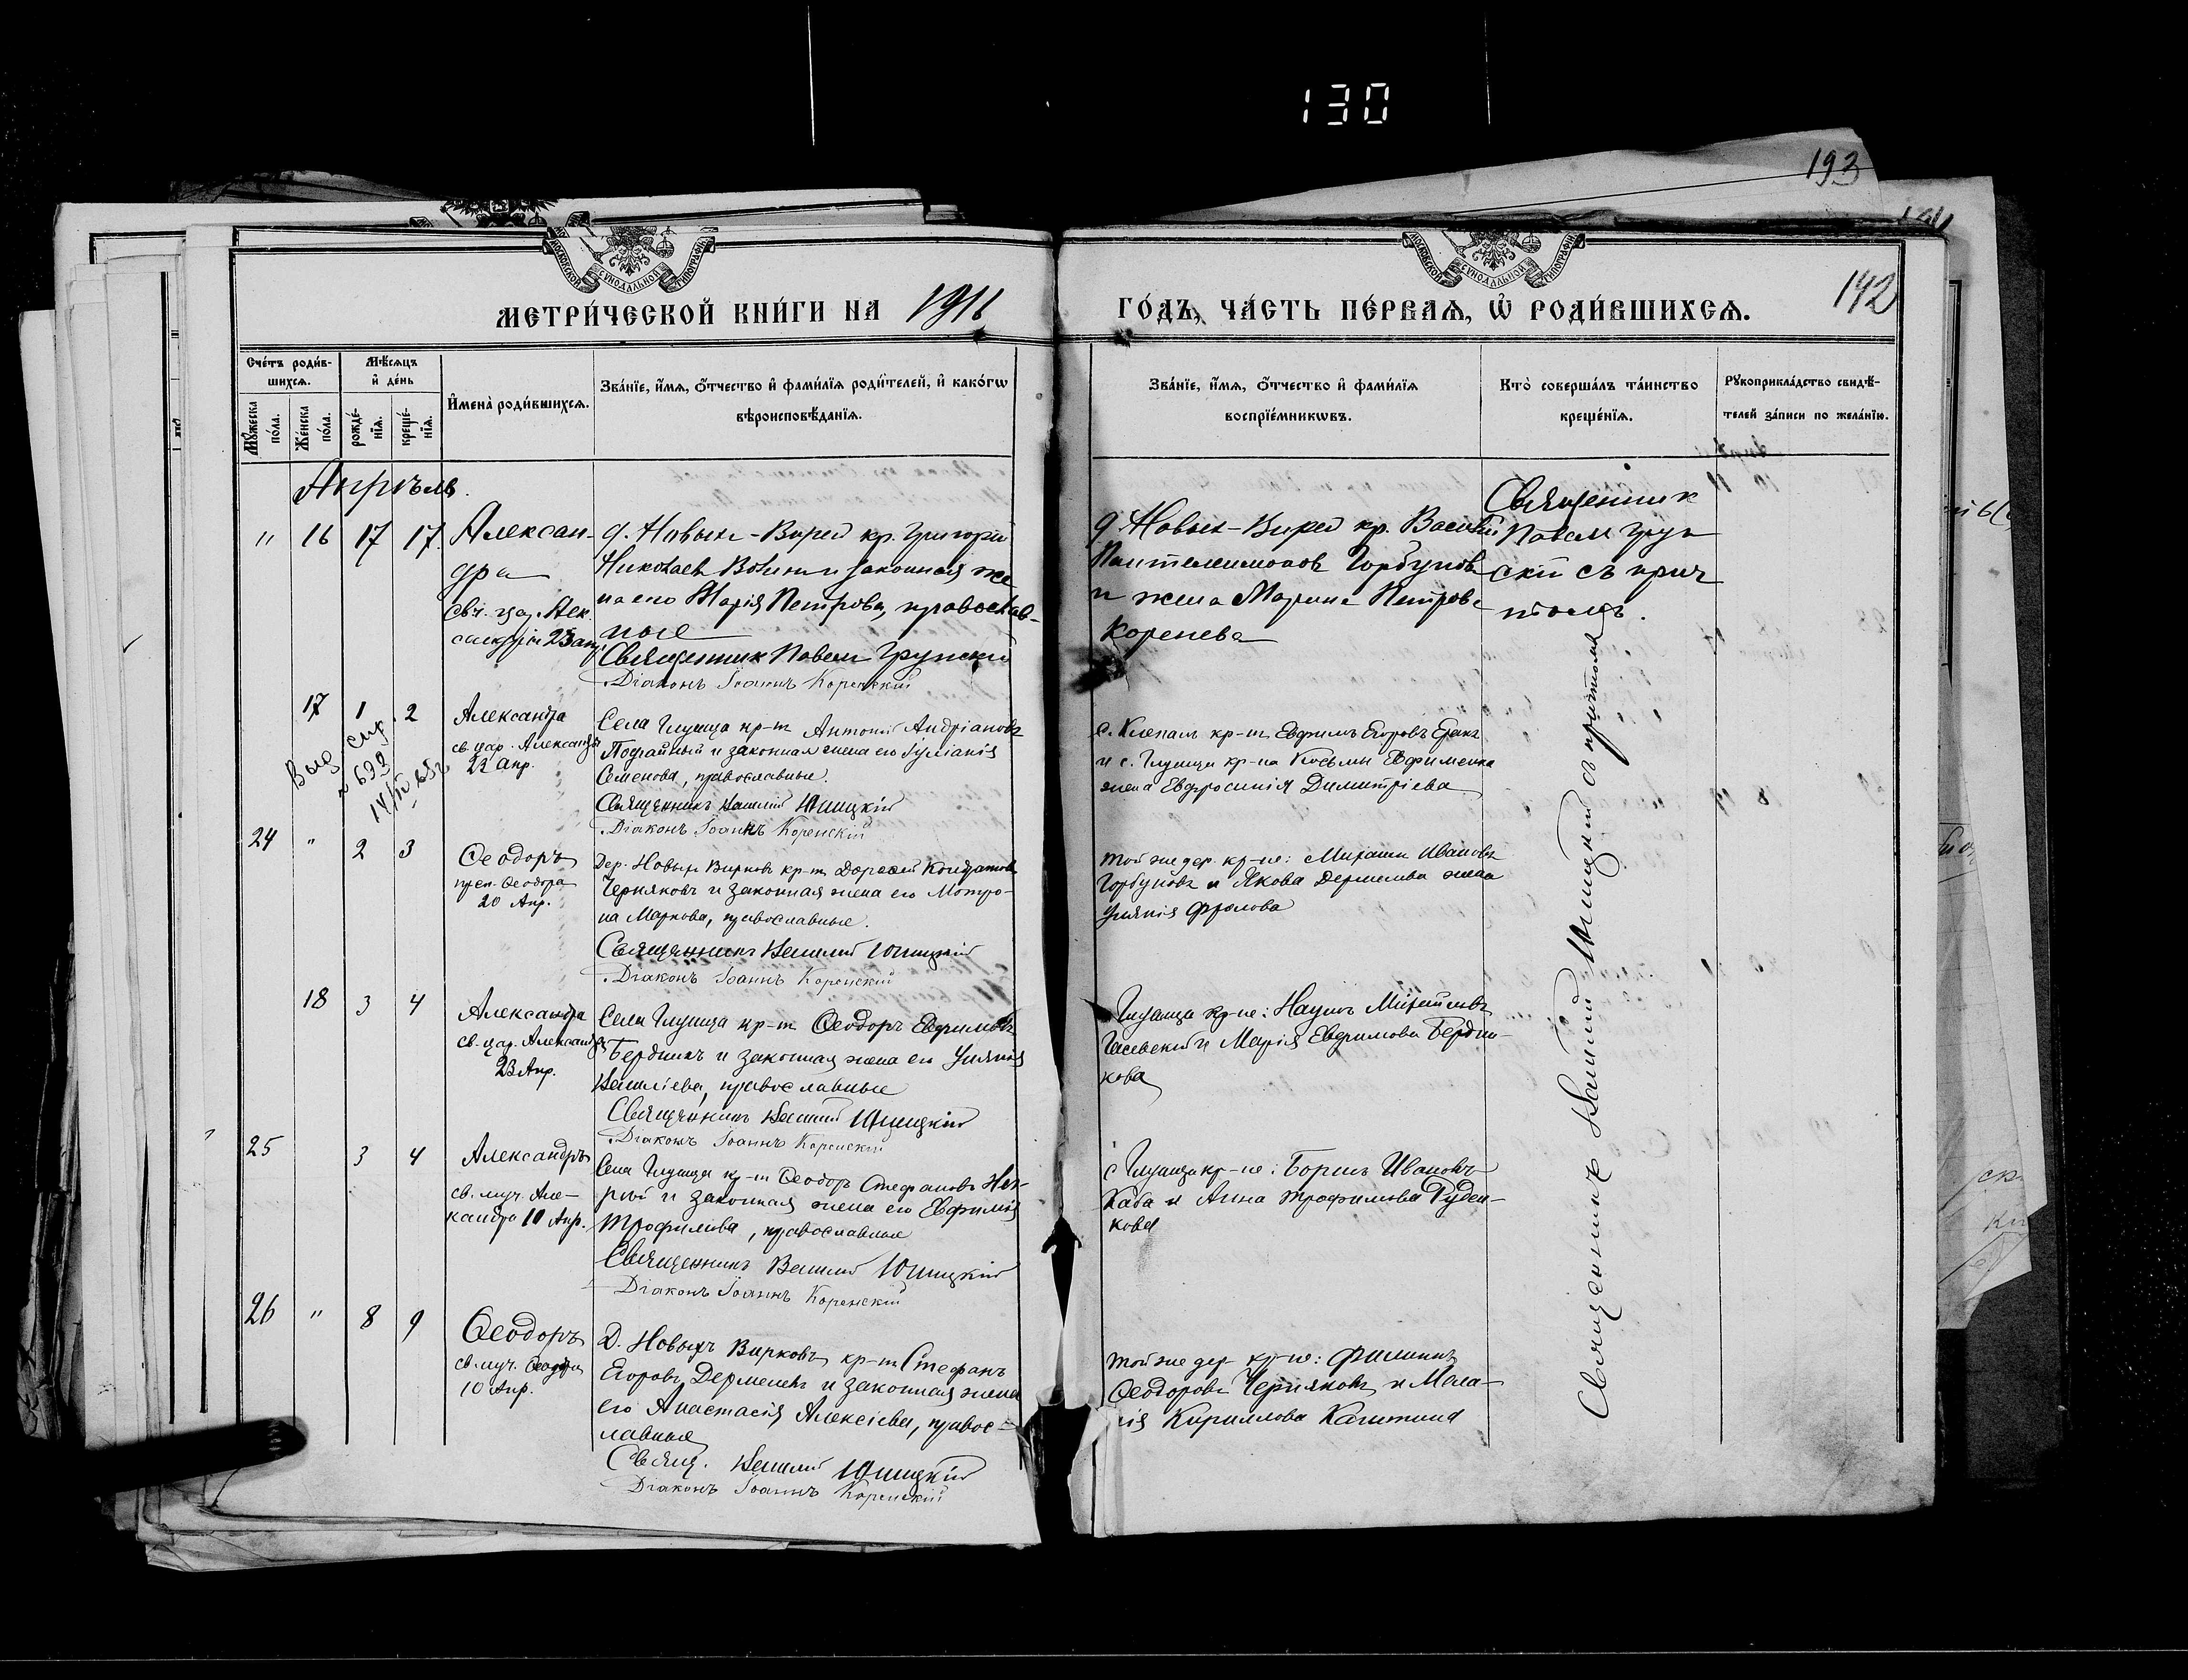 130
193
МОСКОВСКОЙ СѴНОДАЛЬНОЙ ТИПОГРАФІИ
МОСКОВСКОЙ СѴНОДАЛЬНОЙ ТИПОГРАФІИ
МЕТРИ́ЧЕСКОЙ КНИ́ГИ НА 1911
ГО́ДЪ, ЧА́СТЬ ПЕ́РВАѦ, Ѽ РОДИ́ВШИХСѦ.
142
Сче́тъ роди́в-
шихсѧ.
Мꙋ́жеска по́ла.
Же́нска по́ла.
Мѣ́сѧцъ
и҆ де́нь
рожде́-
нїѧ.
креще́-
нїѧ.
И҆мена̀ роди́вшихсѧ.
Зва́нїе, и҆́мѧ, ѻ҆́тчество и҆ фами́лїѧ роди́телей, и҆ како́гѡ
вѣроисповѣ́данїѧ.
Зва́нїе, и҆́мѧ, ѻ҆́тчество и҆ фами́лїѧ
воспрїе́мникѡвъ.
Кто̀ соверша́лъ та́инство
креще́нїѧ.
Рꙋкоприкла́дство свидѣ́-
телей за́писи по жела́нїю.
Апрѣль.
" 16 17 17
Алексан-
дра
св. цар. Алек.
23 апр.
д. Новыхъ-Вирей кр. Григорій
Николаевъ и законная же
на его Марія Петрова, православ-
ные
Священникъ Павелъ Грунскій
Діаконъ Іоаннъ Коренскій
д. Новыхъ-Вирей кр. Василій
Пантелеимоновъ Горбуновъ
и жена Марина Петрова
Коренева
Священник
Павелъ Грун
скій съ прич
томъ.
17 1 2
Александра
св. цар. Александры
23 апр.
№ 699
Села Глущца кр-нъ Антоній Андріановъ
и законная жена его Іуліанія
Семенова, православные.
Священникъ Василій Юшицкій
Діаконъ Іоаннъ Коренскій
с. кр-нъ Евфимъ Егоровъ
и с. кр-на Косьмы Евфименка
жена Евфросинія Димитріева
24 " 2 3
Ѳеодоръ
преп. Ѳеодора
20 Апр.
Дер. Новыхъ Вирковъ кр-нъ Дороѳей Кондратовъ
Черняковъ и законная жена его Мотро-
на Маркова, православные.
Священникъ Василій Юшицкій
Діаконъ Іоаннъ Коренскій
той же дер. кр-не: Михаилъ Ивановъ
Горбуновъ и Якова Дермелева жена
Уліянія Фролова
18 3 4
Александра
св. цар. Александры
23 Апр.
Села кр-нъ Ѳеодоръ Евфимовъ
Бердникъ и законная жена его Уліянія
Василіева, православные
Священникъ Василій Юшицкій
Діаконъ Іоаннъ Коренскій
кр-не: Наумъ Михайловъ
и Марія Евфимова Бердни-
кова
25 3 4
Александръ
св. муч. Але-
ксандра 10 Апр.
Села кр-нъ Ѳеодоръ Стефановъ
и законная жена его Евфимія
Трофимова, православные
Священникъ Василій Юшицкій
Діаконъ Іоаннъ Коренскій
с. кр-не: Борисъ Ивановъ
Каба и Анна Трофимова Руден-
кова
26 " 8 9
Ѳеодоръ
св. муч. Ѳеодора
10 Апр.
Д. Новыхъ Вирковъ кр-нъ Стефанъ
Егоровъ Дермелевъ и законная жена
его Анастасія Алексіева, правос-
лавные
Свящ. Василій Юшицкій
Діаконъ Іоаннъ Коренскій
той же дер. кр-не: Филиппъ
Ѳеодоровъ Черняковъ и Мела-
нія Кириллова
Священникъ Василій Юшицкій съ причтомъ